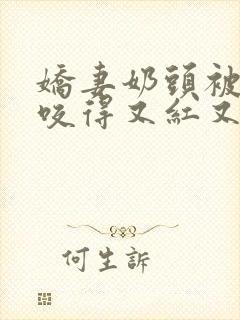 嬌妻奶頭被
咬得又紅又
何生訴